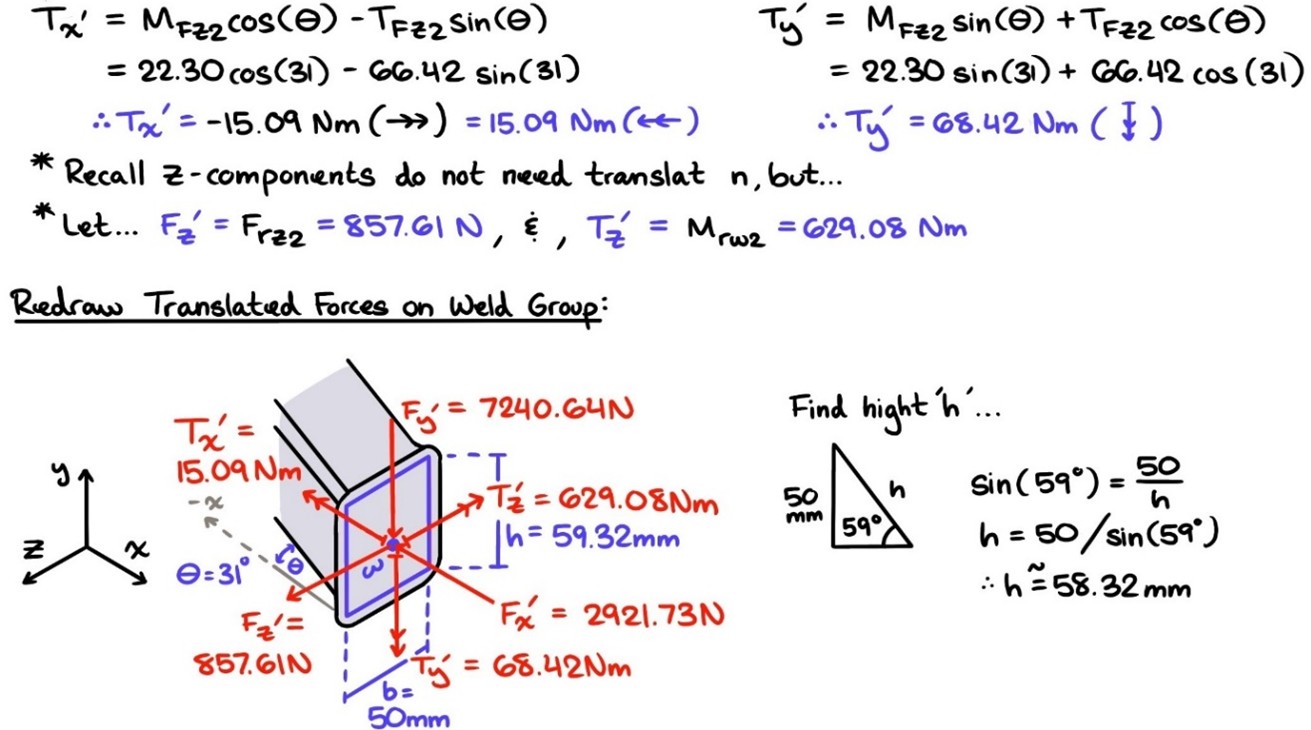 Tx′ = MFz2 cos(θ) - TFz2 sin(θ)
= 22.30 cos(31) - 66.42 sin(31)
∴ Tx′ = -15.09 Nm (→→) = 15.09 Nm (←←)
Ty′ = MFz2 sin(θ) + TFz2 cos(θ)
= 22.30 sin(31) + 66.42 cos(31)
∴ Ty′ = 68.42 Nm (↡)
* Recall z-components do not need translat n, but...
* Let... Fz′ = Frz2 = 857.61 N, & , Tz′ = Mrw2 = 629.08 Nm
Redraw Translated Forces on Weld Group:
y
z
x
Tx′ =
15.09 Nm
-x
θ = 31°
θ
Fz′ =
857.61N
w
Fy′ = 7240.64N
Tz′ = 629.08Nm
h = 59.32mm
Fx′ = 2921.73N
Ty′ = 68.42Nm
b =
50mm
Find hight 'h'...
50
mm
h
59°
sin(59°) = 50/h
h = 50/sin(59°)
∴ h ≅ 58.32 mm